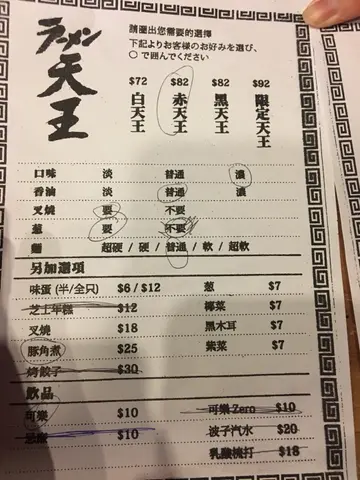 ラーメン
天王
請圈出您需要的選擇
下記よりお客様のお好みを選び、
○で囲んでください
$72 $82 $82 $92
白天王 赤天王 黒天王 限定天王
口味 淡 普通 濃
香油 淡 普通 濃
叉燒 要 不要
葱 要 不要
麵 超硬 / 硬 / 普通 / 軟 / 超軟
另加選項
味蛋 (半/全只) $6 / $12 葱 $7
芝士年糕 $12 椰菜 $7
叉燒 $18 黑木耳 $7
豚角煮 $25 紫菜 $7
烤餃子 $30
飲品
可樂 $10 可樂 Zero $10
$10 波子汽水 $20
乳酸梳打 $18